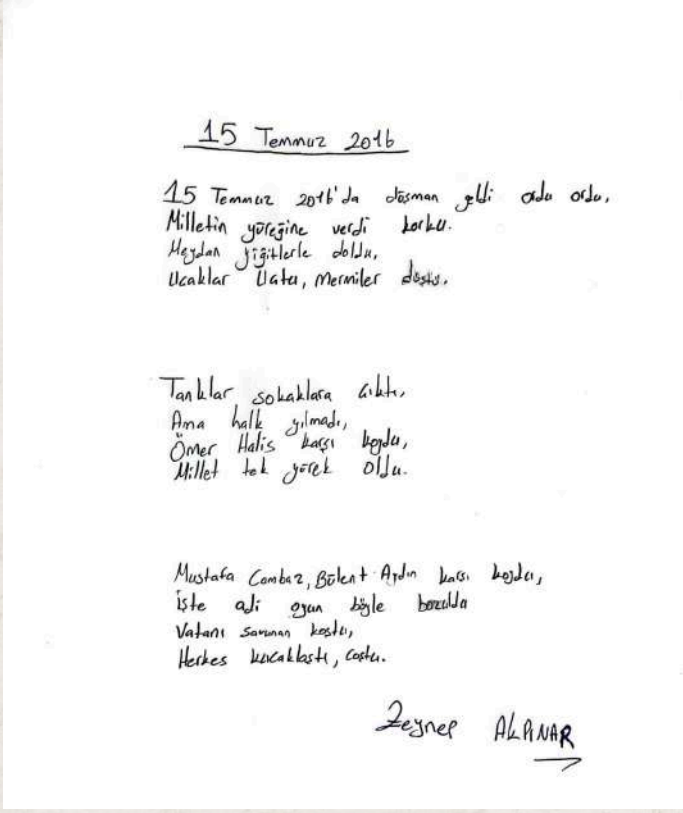 15 Temmuz 2016
15 Temmuz 2016'da düşman geldi ordu ordu,
Milletin yüreğine verdi korku.
Meydan yiğitlerle doldu,
Ucaklar Uctu, Mermiler düştü.
Tanklar sokaklara cıktı,
Ama halk yılmadı,
Ömer Halis karşı koydu,
Millet tek yürek oldu.
Mustafa Cambaz, Bülent Aydın karşı koydu,
İşte adi oyun böyle bozuldu
Vatanı savunan kostu,
Herkes kucaklastı, costu.
Zeynep AKPINAR